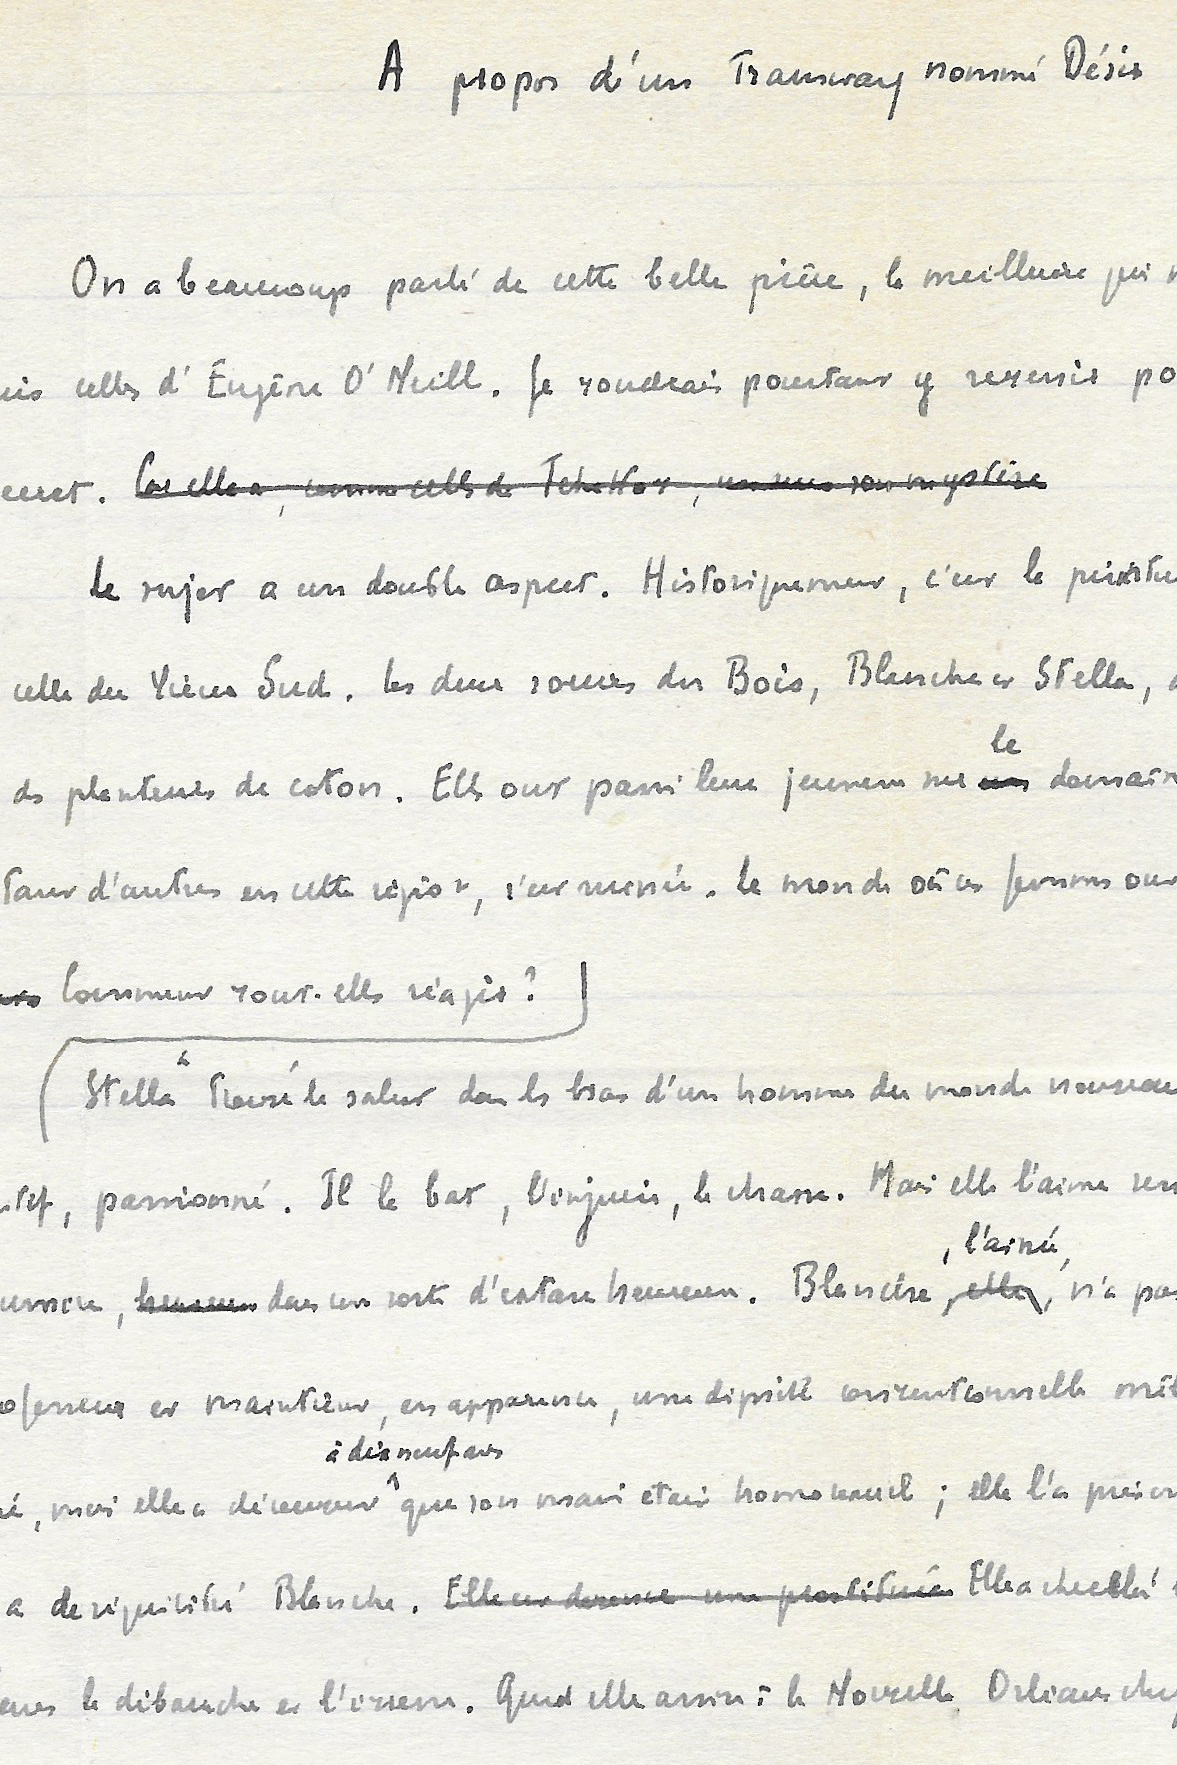 A propos d'un Tramway nommé Désir
On a beaucoup parlé de cette belle pièce, la meilleure qui
celles d'Eugène O'Neill. Je voudrais pourtant y revenir
Car elle a, comme celles de Tchekhov, son mystère
Le sujet a un double aspect. Historiquement, c'est la
celle du Vieux Sud. Les deux soeurs du Bois, Blanche et Stella,
le
des planteurs de coton. Elles ont passé leur jeunesse sur un
tant d'autres en cette région, s'est ruinée. Le monde où ces femmes ont
Comment vont-elles réagir?
a
Stella trouvé le salut dans les bras d'un homme du monde nouveau
passionné. Il la bat, l'injurie, la chasse. Mais elle l'aime
, l'aînée,
heureuse dans une sorte d'extase heureuse. Blanche, elle, n'a pas
et maintient, en apparence, une dignité conventionnelle
à dix neuf ans
mais elle a découvert que son mari était homosexuel ; elle l'a
a deséquilibré Blanche. Elle est devenue une prostituée Elle a cherché
la débauche et l'ivresse. Quand elle arrive à la Nouvelle Orléans